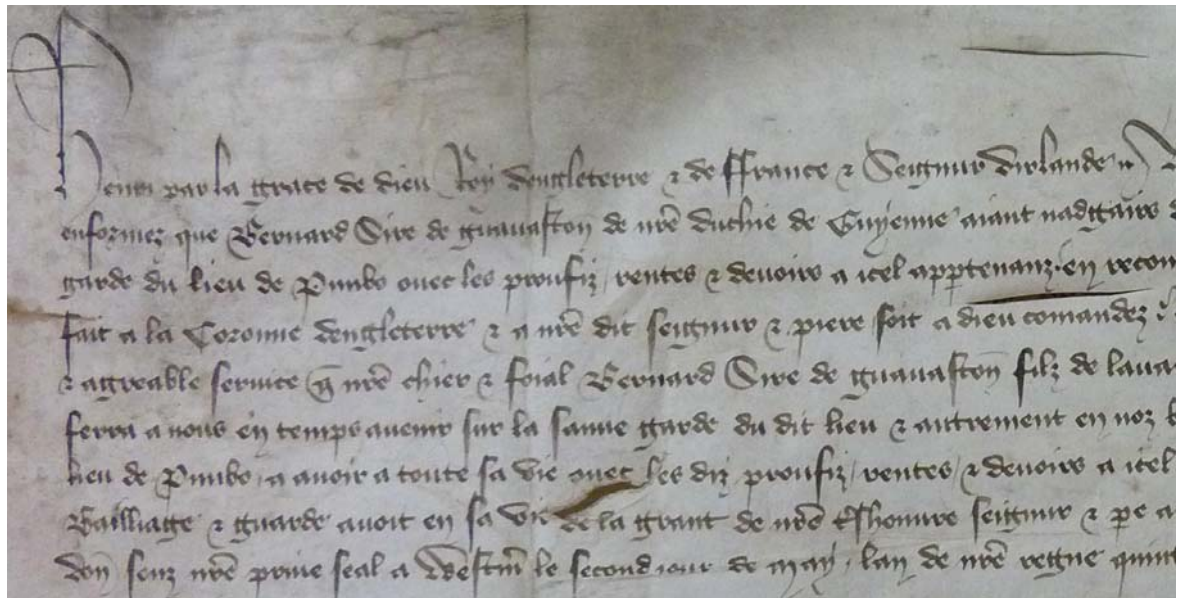 Henri par la grace de dieu Roy dengleterre & de ffrance & Seigneur dirlande
enformez que Bernard Sire de guauaston de nr̃e duchie de Guyenne aiant nadgairs
garde du lieu de Pimbo ouec les proufiz, rentes & deuoirs a icel app̱tenanz, en recom
fait a la Coronne dengleterre & a nr̃e dit seignur & piere soit a dieu comandez
& agreable seruice q̃ nr̃e chier & foial Bernard Sire de guauaston filz de laua
ferra a nous en temps auenir sur la sauue garde du dit lieu & autrement en noz
lieu de Pimbo, a auoir a toute sa vie ouec les diz proufiz, rentes, & deuoirs a icel
Bailliage & guarde auoit en sa vie de la grant de nr̃e t̃shonure seignur & pe a
don̄ souz nr̃e priue seal a Westm̄ le second iour de may, lan de nr̃e regne quint